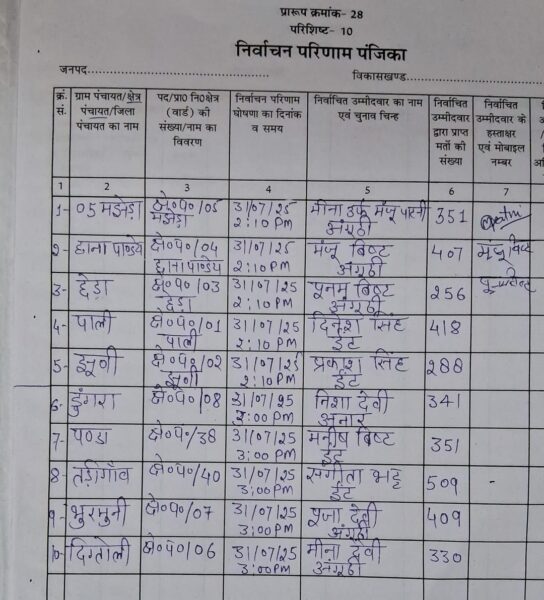 प्रारूप क्रमांक- 28
परिशिष्ट- 10
निर्वाचन परिणाम पंजिका
जनपद
विकासखण्ड
क्रं. सं. ग्राम पंचायत/क्षेत्र पंचायत/जिला पंचायत का नाम पद/प्रा0 नि0क्षेत्र (वार्ड) की संख्या/नाम का विवरण निर्वाचन परिणाम घोषणा का दिनांक व समय निर्वाचित उम्मीदवार का नाम एवं चुनाव चिन्ह निर्वाचित उम्मीदवार द्वारा प्राप्त मतों की संख्या निर्वाचित उम्मीदवार के हस्ताक्षर एवं मोबाइल नम्बर
1 2 3 4 5 6 7
1- 05 मझेड़ा क्षे०प०/05 31/07/25 मीना उर्फ मंजू 351
मझेड़ा 2:10PM अंगूठी
2- ढाना पाण्डेय क्षे०प०/04 31/07/25 मंजू बिष्ट 407 मंजू बिष्ट
ढाना पाण्डेय 2:10PM अंगूठी
3- छेड़ा क्षे०प०/03 31/07/25 पूनम बिष्ट 256
छेड़ा 2:10PM अंगूठी
4- पाली क्षे०प०/01 31/07/25 दिनेश सिंह 418
पाली 2:10PM ईंट
5- क्षे०प०/02 31/07/25 प्रकाश सिंह 288
2:10PM ईंट
6- डुंगरा क्षे०प०/08 31/07/25 निशा देवी 341
:00PM अनार
7- पण्डा क्षे०प०/38 31/07/25 मनीष बिष्ट 351
3:00PM ईंट
8- तड़ीगाँव क्षे०प०/40 31/07/25 संगीता भट्ट 509 -
3:00PM ईंट
9- भुरमुनी क्षे०प०/07 31/07/25 पूजा देवी 409
3:00PM अंगूठी
10- दिगतोली क्षे०प०/06 31/07/25 मीना देवी 330
3:00PM अंगूठी